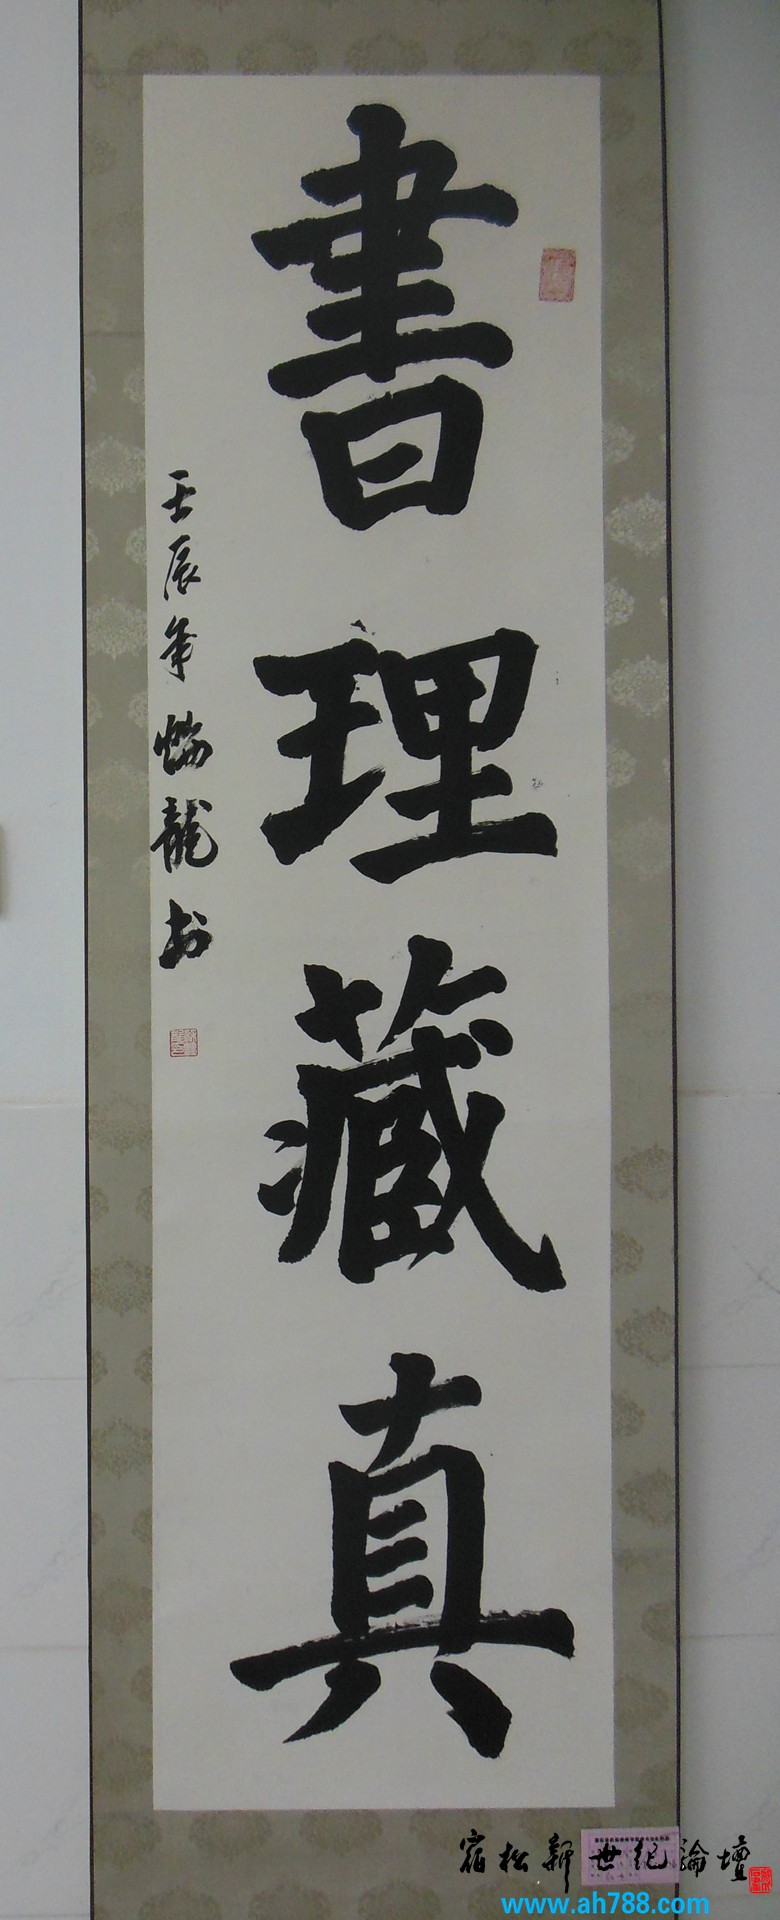 書理藏真
壬辰年 龍书
宿松新世纪論壇
www.ah788.com